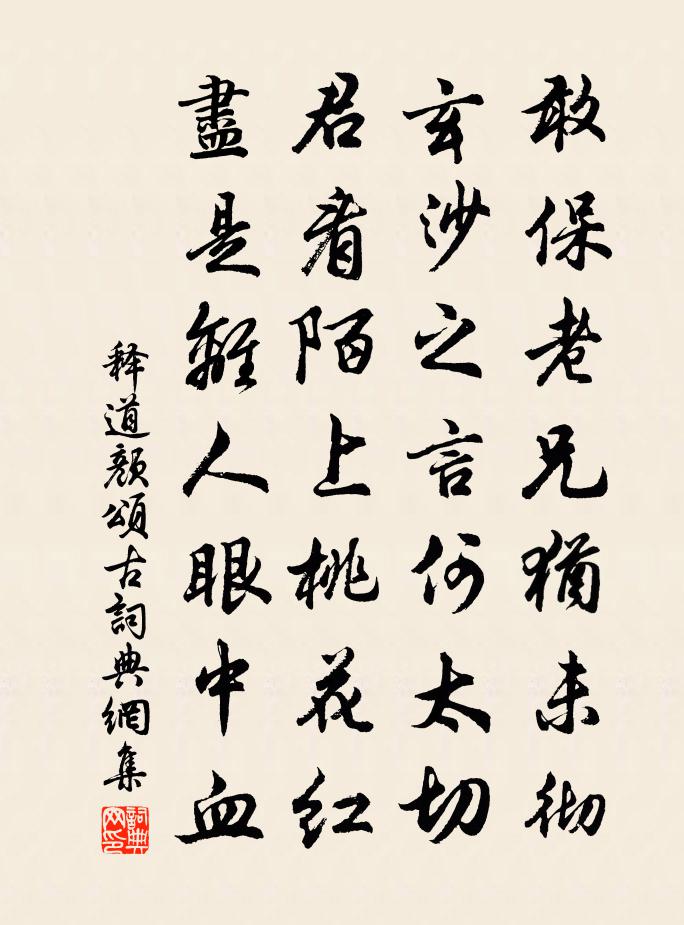 敢保老兄猶未徹
玄沙之言何太切
君看陌上桃花紅
盡是離人眼中血
释道顏頌古詞典網集
詞典
网印